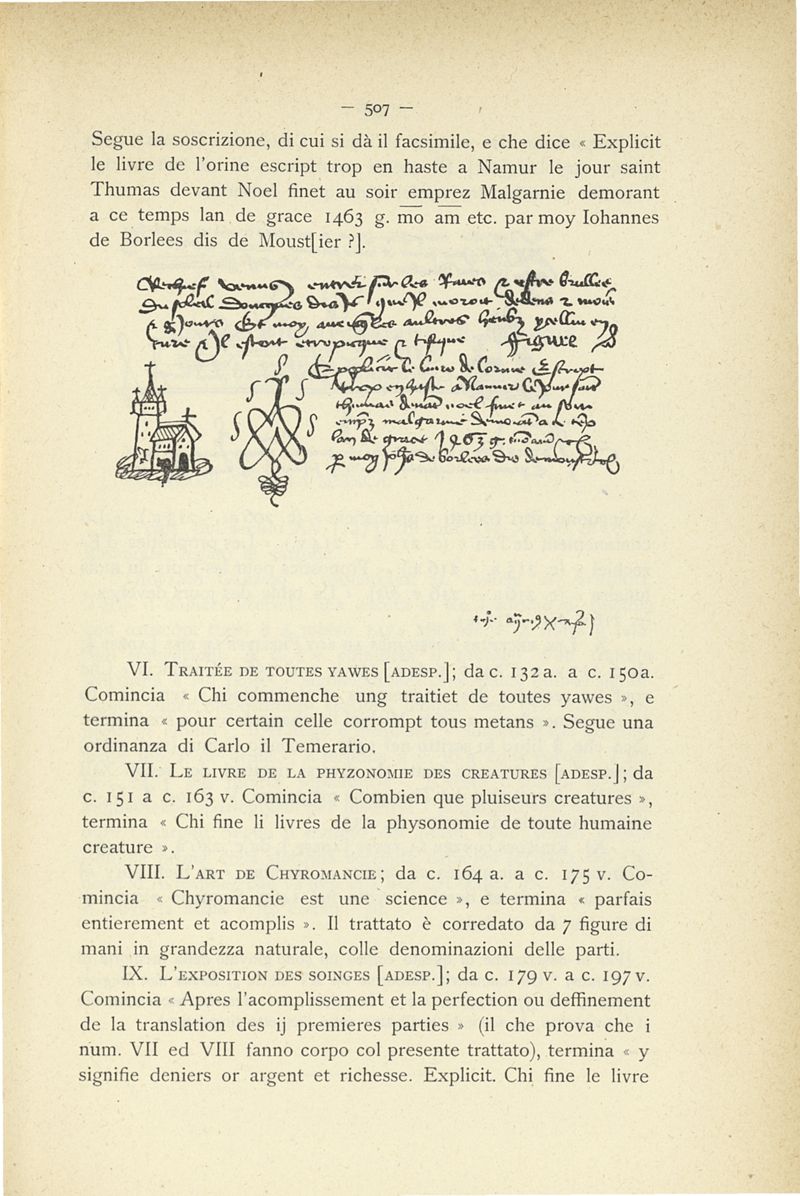 — 507 —
Segue la soscrizione, di cui si dà il facsimile, e che dice « Explicit
le livre de l'orine escript trop en haste a Namur le jour saint
Thumas devant Noel finet au soir emprez Malgarnie demorant
a ce temps lan de grace 1463 g. m̅o̅ a̅m̅ etc. par moy Iohannes
de Borlees dis de Moust[ier ?].
Figure
Explicit le livre de lorine Escript
trop en haste a Namur le jour saint
thumas devant noel finet au soir
emprez malgarnie demorant a ce temps
lan de grace 1463 g.
par moy de borlees dis de
VI. TRAITÉE DE TOUTES YAWES [ADESP.]; da c. 132 a. a c. 150 a.
Comincia « Chi commenche ung traitiet de toutes yawes », e
termina « pour certain celle corrompt tous metans ». Segue una
ordinanza di Carlo il Temerario.
VII. LE LIVRE DE LA PHYZONOMIE DES CREATURES [ADESP.]; da
c. 151 a c. 163 v. Comincia « Combien que pluiseurs creatures »,
termina « Chi fine li livres de la physonomie de toute humaine
creature ».
VIII. L'ART DE CHYROMANCIE; da c. 164 a. a c. 175 v. Co-
mincia « Chyromancie est une science », e termina « parfais
entierement et acomplis ». Il trattato è corredato da 7 figure di
mani in grandezza naturale, colle denominazioni delle parti.
IX. L'EXPOSITION DES SOINGES [ADESP.]; da c. 179 v. a c. 197 v.
Comincia « Apres l'acomplissement et la perfection ou deffinement
de la translation des ij premieres parties » (il che prova che i
num. VII ed VIII fanno corpo col presente trattato), termina « y
signifie deniers or argent et richesse. Explicit. Chi fine le livre